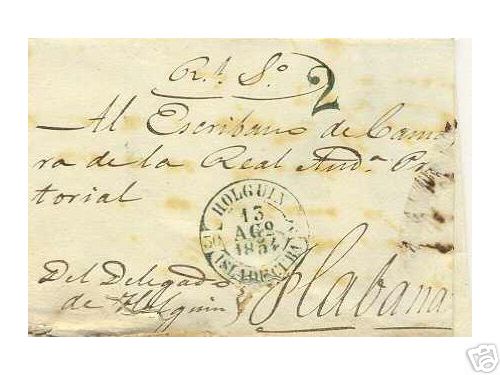 Rl. So.
2
Al Escribano de Cama
ra de la Real Auda. Pre
torial
HOLGUIN
13
AGO
1854
ISLA DE CUBA
Del Delegado
de Holguin
Habana